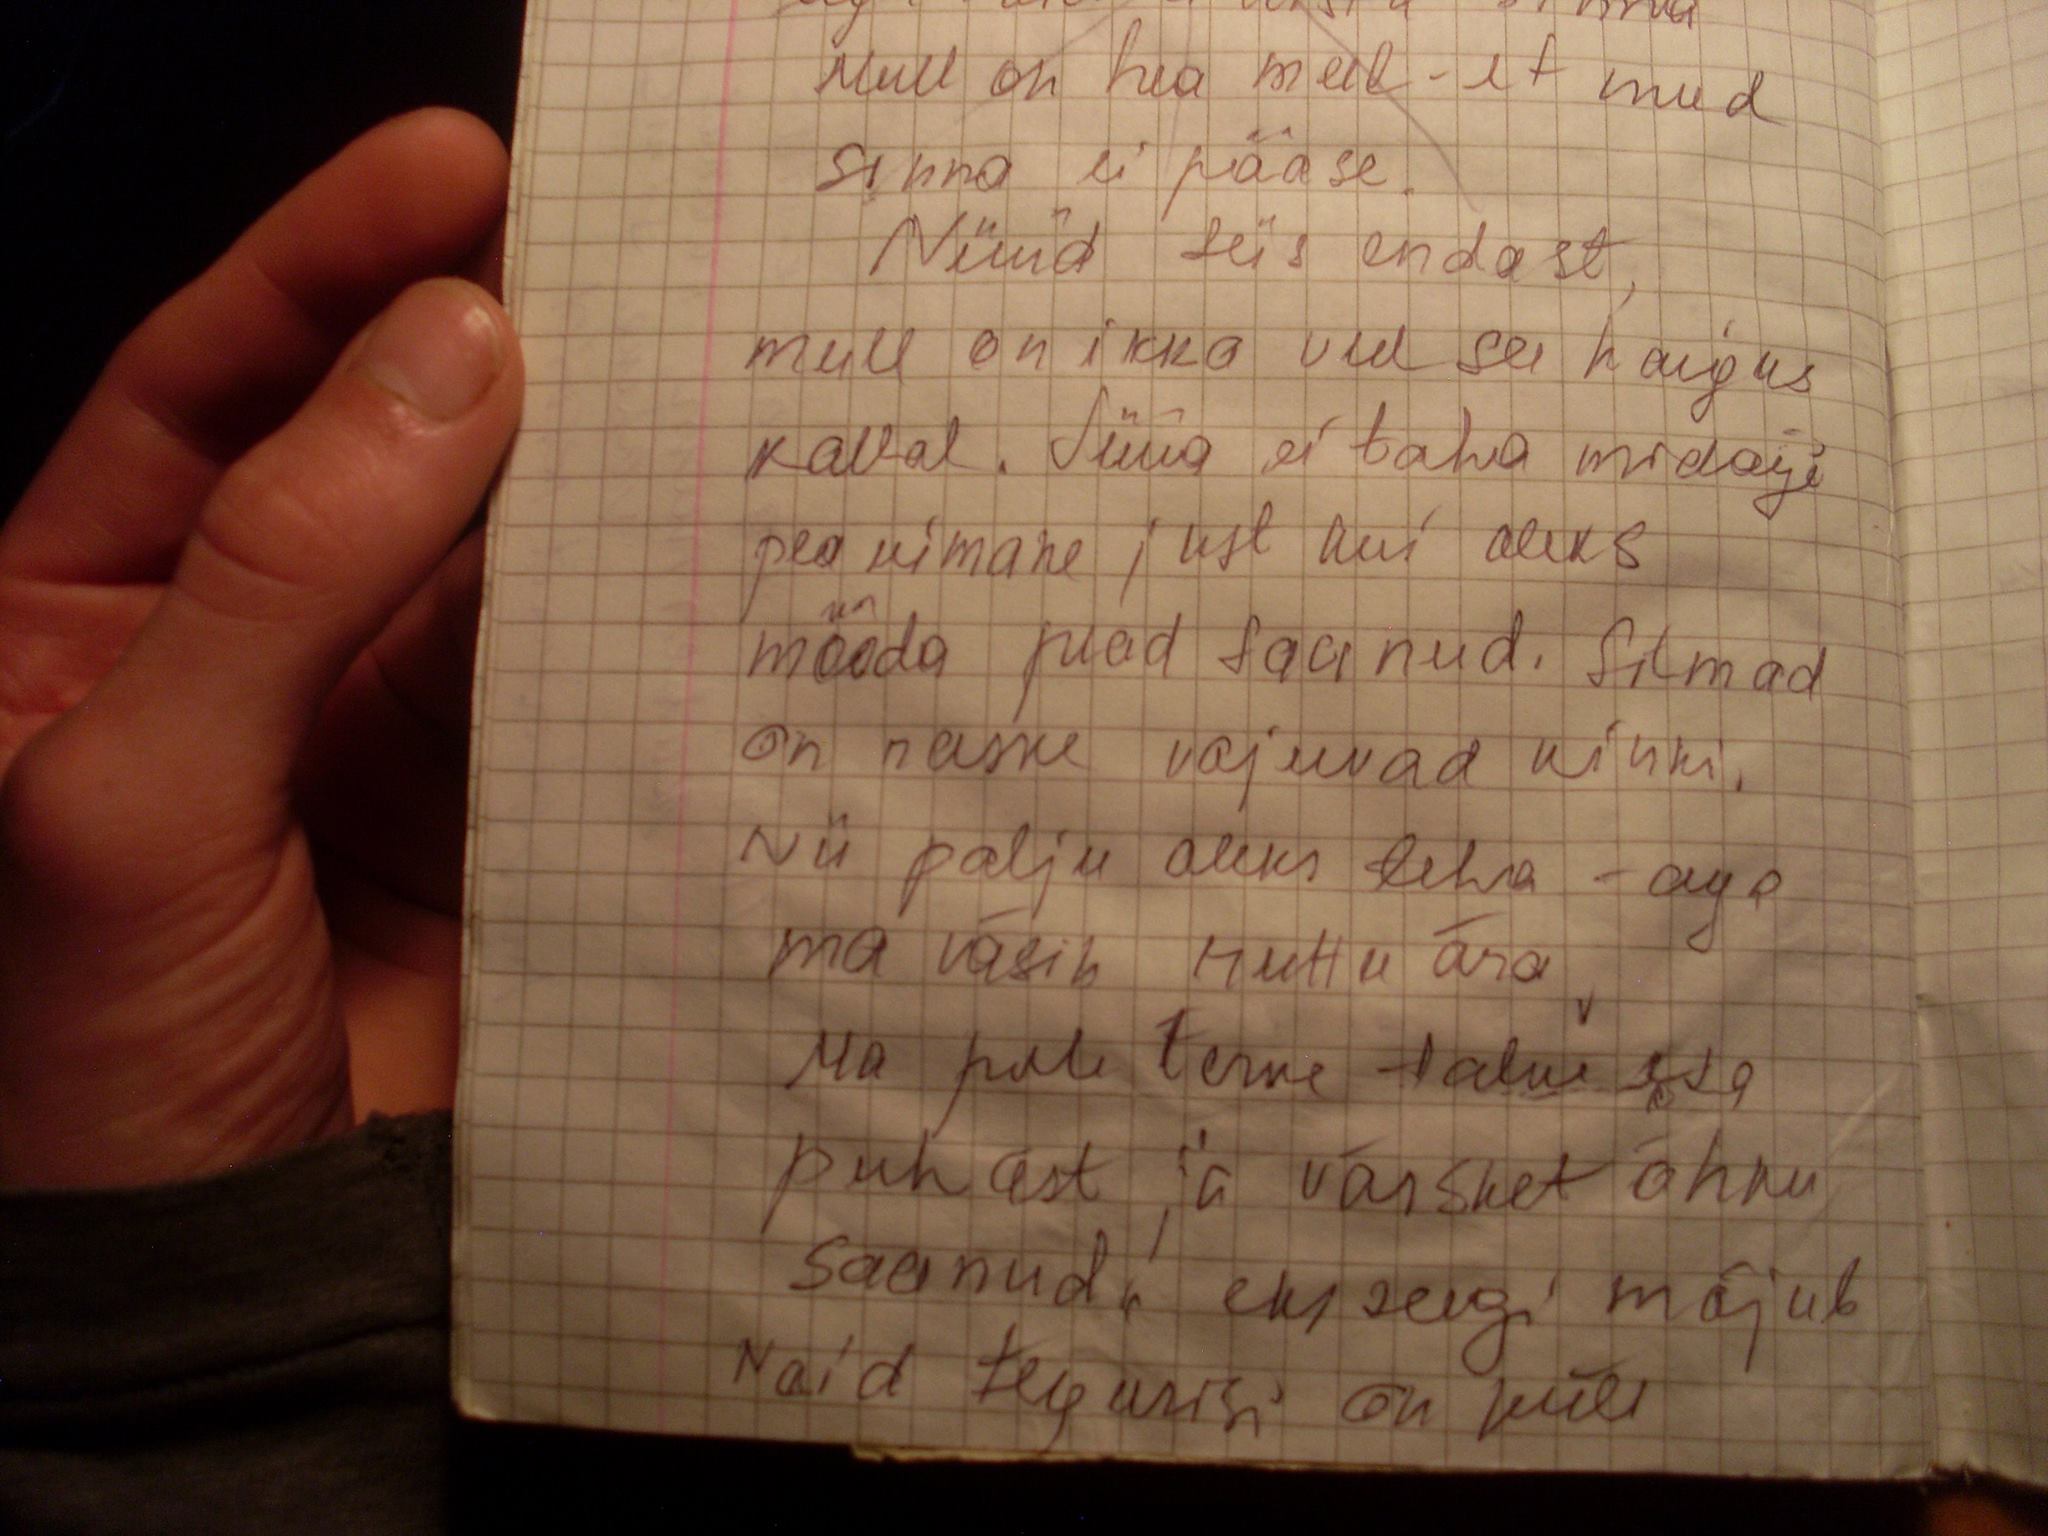 sinna
Mull on hea meel - et mud
sinna ei pääse.
Nüüd siis endast,
mull on ikka veel see haigus
kallal. Süüa ei taha midagi
pea uimane just kui oleks
mööda pead saanud. Silmad
on raske vajuvad kinni.
Nii palju oleks teha - aga
ma väsib ruttu ära,
Ma pole terve talve
puhast ja värsket õhku
saanud, eks seegi mõjub
Naid tegurisi on